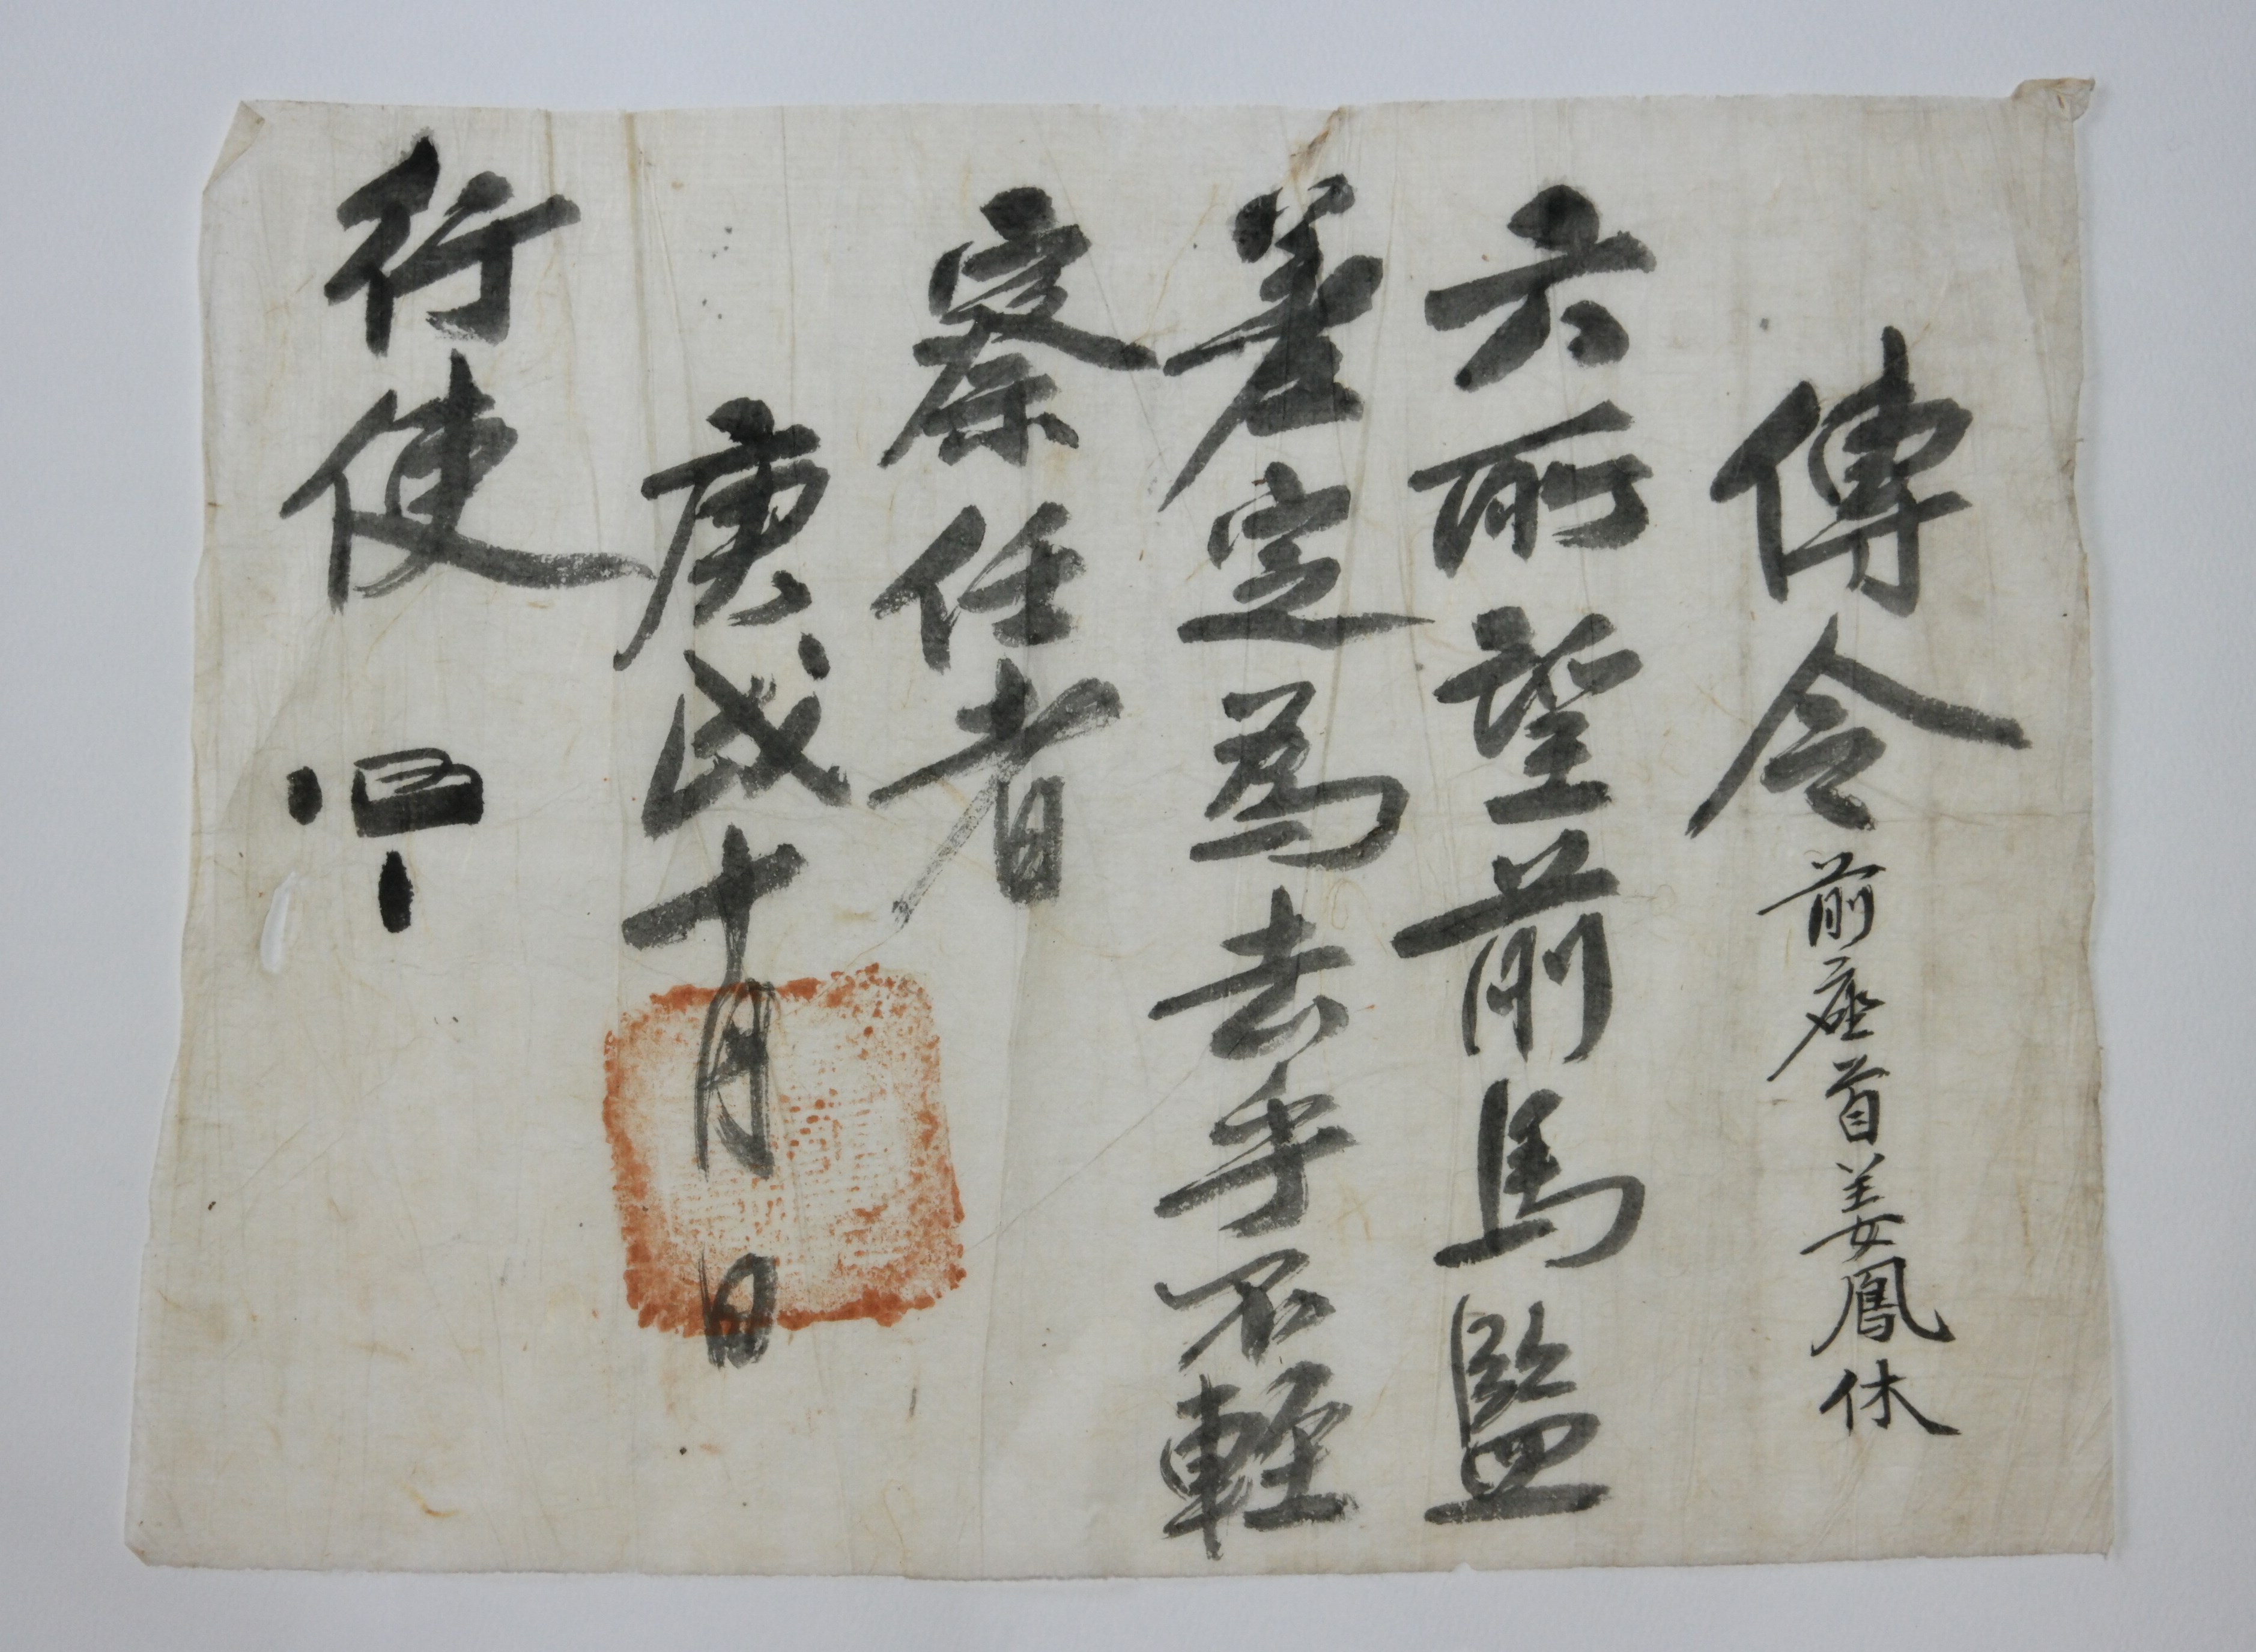 傳令 前座首姜鳳休
六所望前馬監
差定爲去乎不輕
察任者
庚戌十月 日
行使